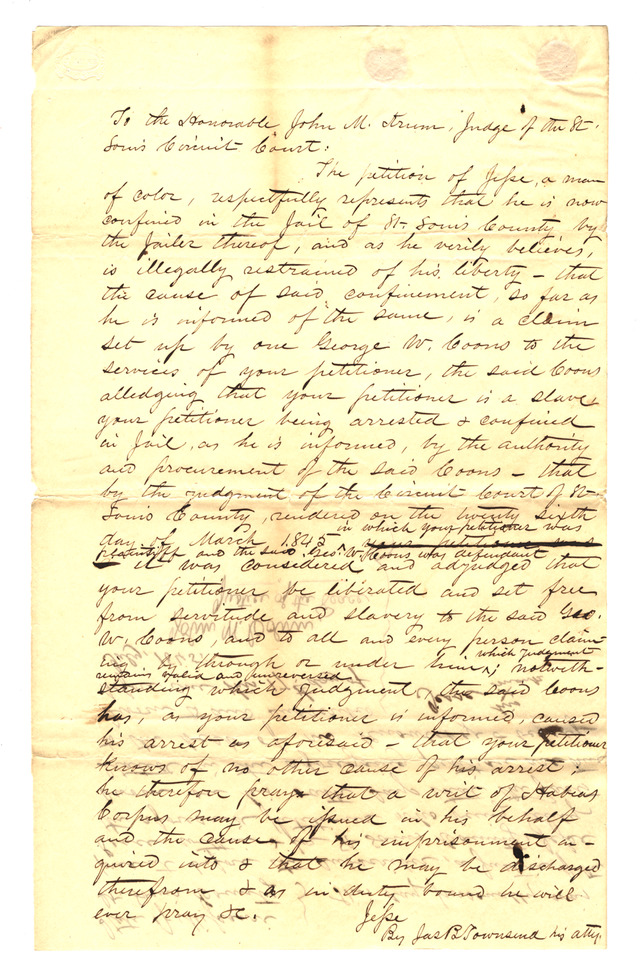 To the Honorable John M. Krum, Judge of the St.
Louis Circuit Court:
The petition of Jesse, a man
of color, respectfully represents that he is now
confined in the Jail of St. Louis County by
the Jailer thereof, and as he verily believes,
is illegally restrained of his liberty – that
the cause of said confinement, so far as
he is informed of the same, is a claim
set up by one George W. Coons to the
services of your petitioner, the said Coons
alledging that your petitioner is a slave,
your petitioner being arrested & confined
in Jail, as he is informed, by the authority
and procurement of the said Coons – that
by the judgment of the Circuit Court of St.
Louis County, rendered on the twenty sixth
day of March 1845 in which your petitioner was
plaintiff and the said Geo. W. Coons was defendant
it was considered and adjudged that
your petitioner be liberated and set free
from servitude and slavery to the said Geo.
W. Coons and to all and every person claim-
ing by through or under him, which judgment
remains valid and unreversed; notwith-
standing which judgment the said Coons
has, as your petitioner is informed, caused
his arrest as aforesaid – that your petitioner
knows of no other cause of his arrest;
he therefore prays that a writ of Habeas
Corpus may be issued in his behalf
and the cause of his imprisonment in-
quired into & that he may be discharged
therefrom & as in duty bound he will
ever pray &c.
Jesse
By Jas B Townsend his atty.